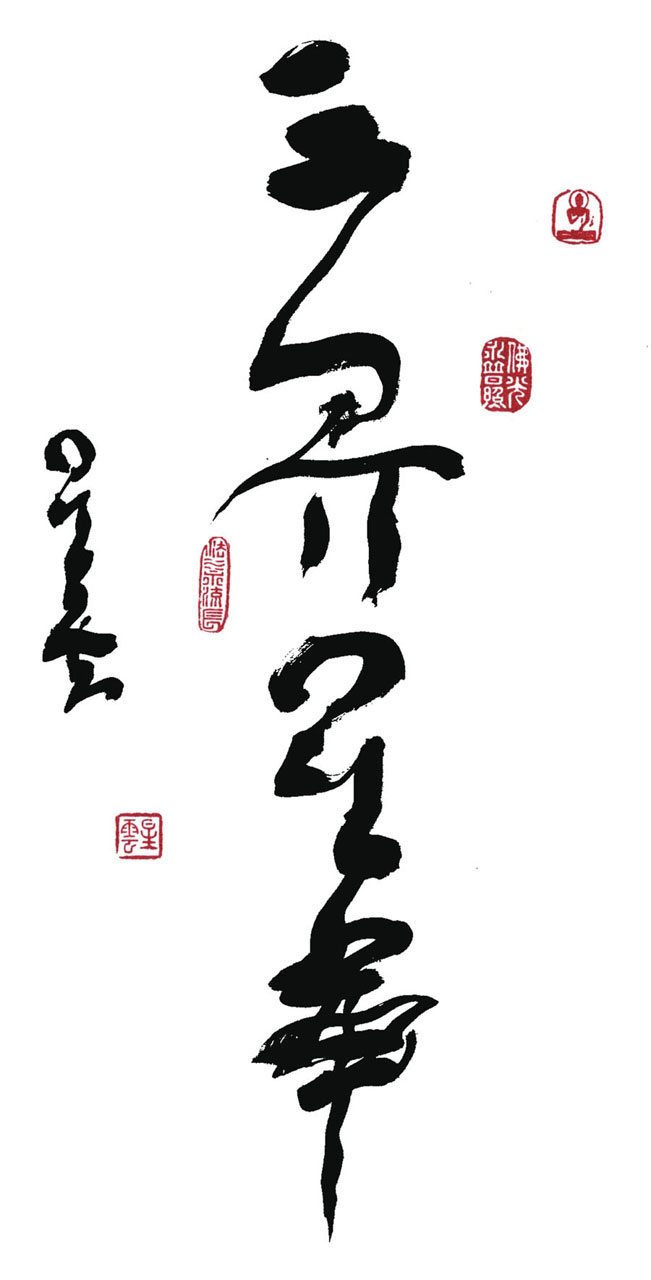 佛光普照
三界星華
法水流長
星雲
星雲